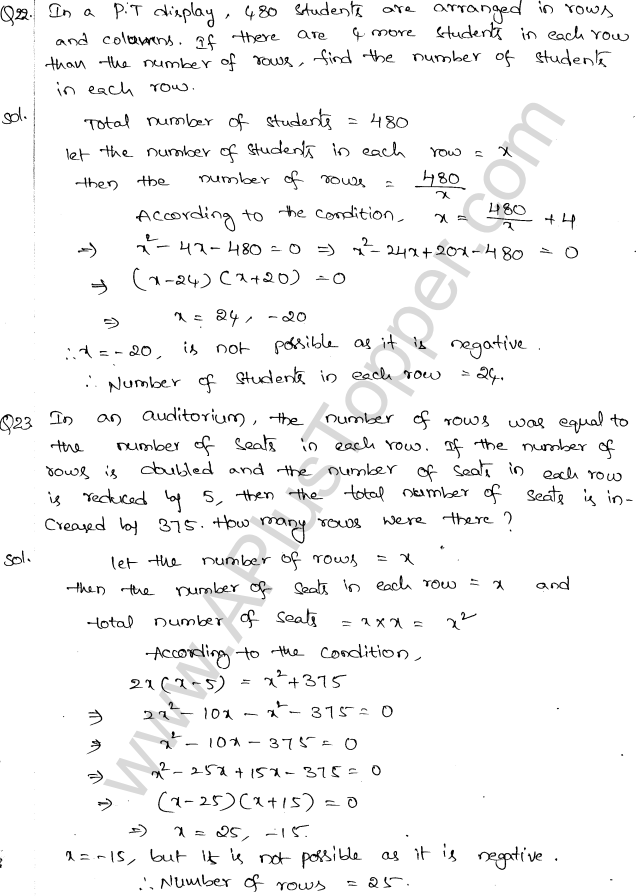 Q22. In a P.T display, 480 students are arranged in rows
and columns. If there are 4 more students in each row
than the number of rows, find the number of students
in each row.
Sol. Total number of students = 480
let the number of students in each row = x
then the number of rows = 480/x
According to the condition, x = 480/x + 4
⇒ x² - 4x - 480 = 0 ⇒ x² - 24x + 20x - 480 = 0
⇒ (x-24) (x+20) = 0
⇒ x = 24, -20
∴ x = -20, is not possible as it is negative.
∴ Number of students in each row = 24.
Q23 In an auditorium, the number of rows was equal to
the number of seats in each row. If the number of
rows is doubled and the number of seats in each row
is reduced by 5, then the total number of seats is in-
creased by 375. How many rows were there?
Sol. let the number of rows = x
then the number of seats in each row = x and
total number of seats = x × x = x²
According to the condition,
2x(x-5) = x² + 375
⇒ 2x² - 10x - x² - 375 = 0
⇒ x² - 10x - 375 = 0
⇒ x² - 25x + 15x - 375 = 0
⇒ (x-25) (x+15) = 0
⇒ x = 25, -15.
x = -15, but it is not possible as it is negative.
∴ Number of rows = 25.
www.APlusTopper.com